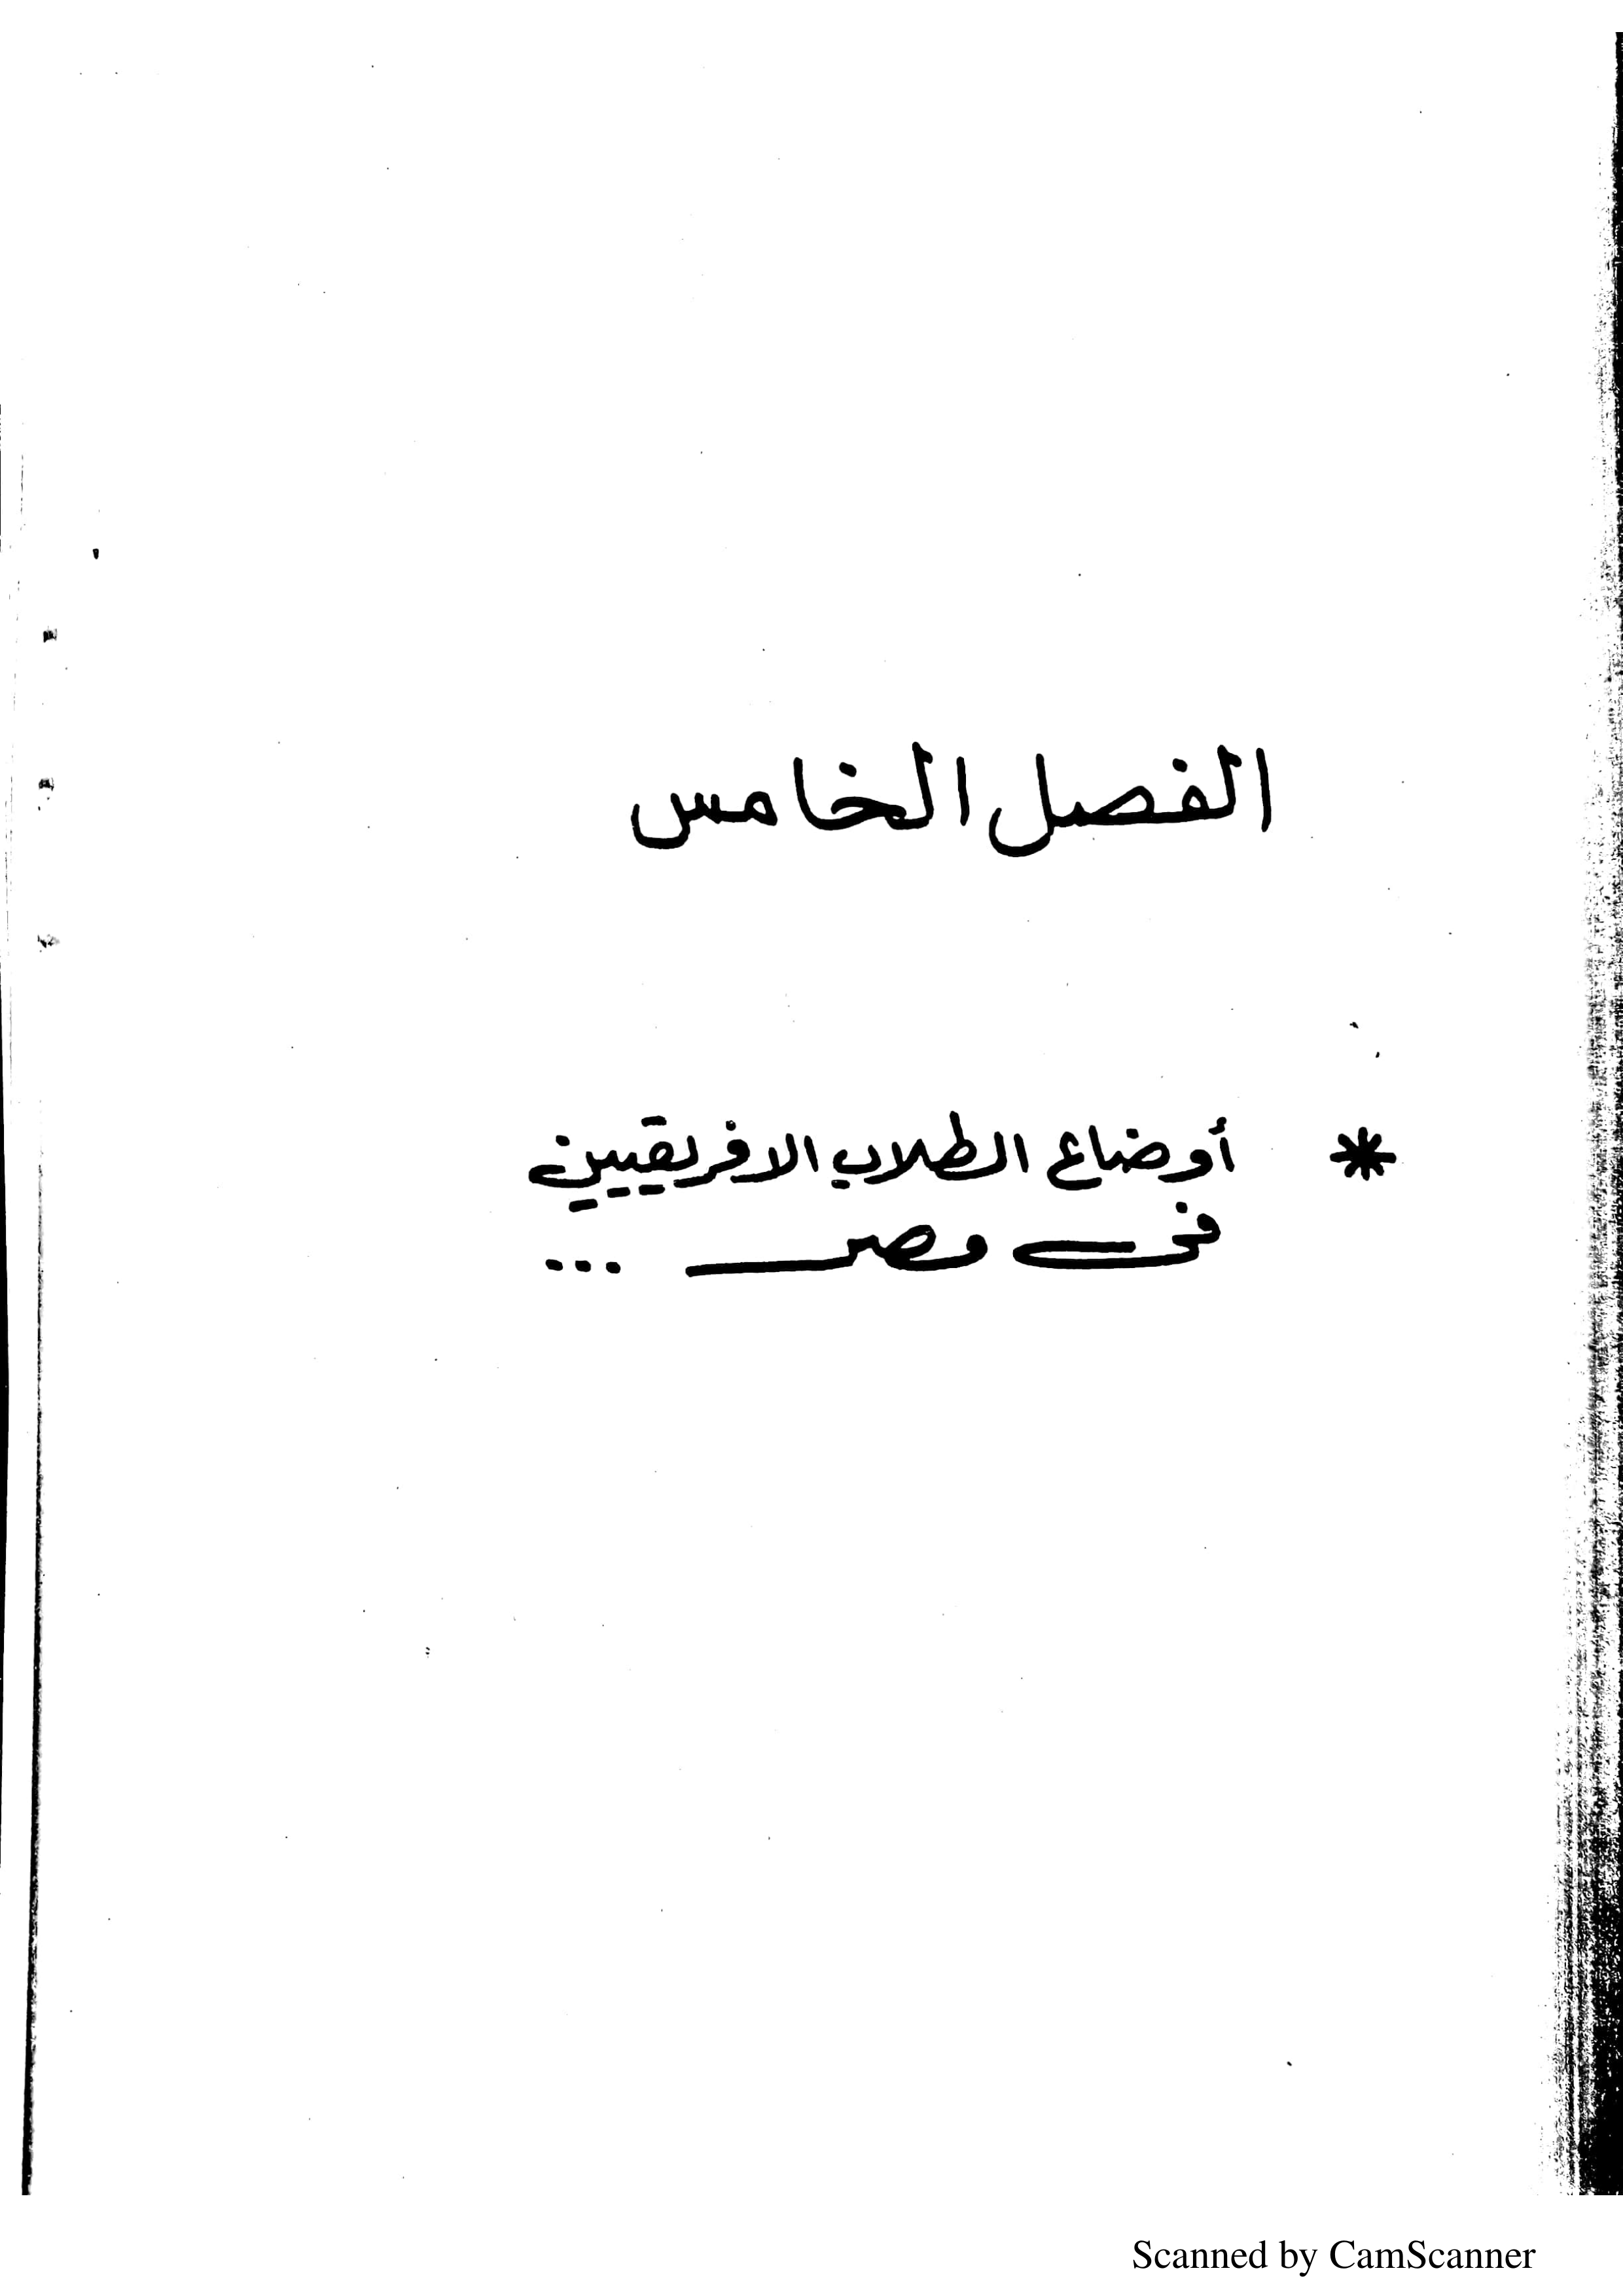 الفصل الخامس
* أوضاع الطلاب الافريقيين
فى مصر ...
Scanned by CamScanner